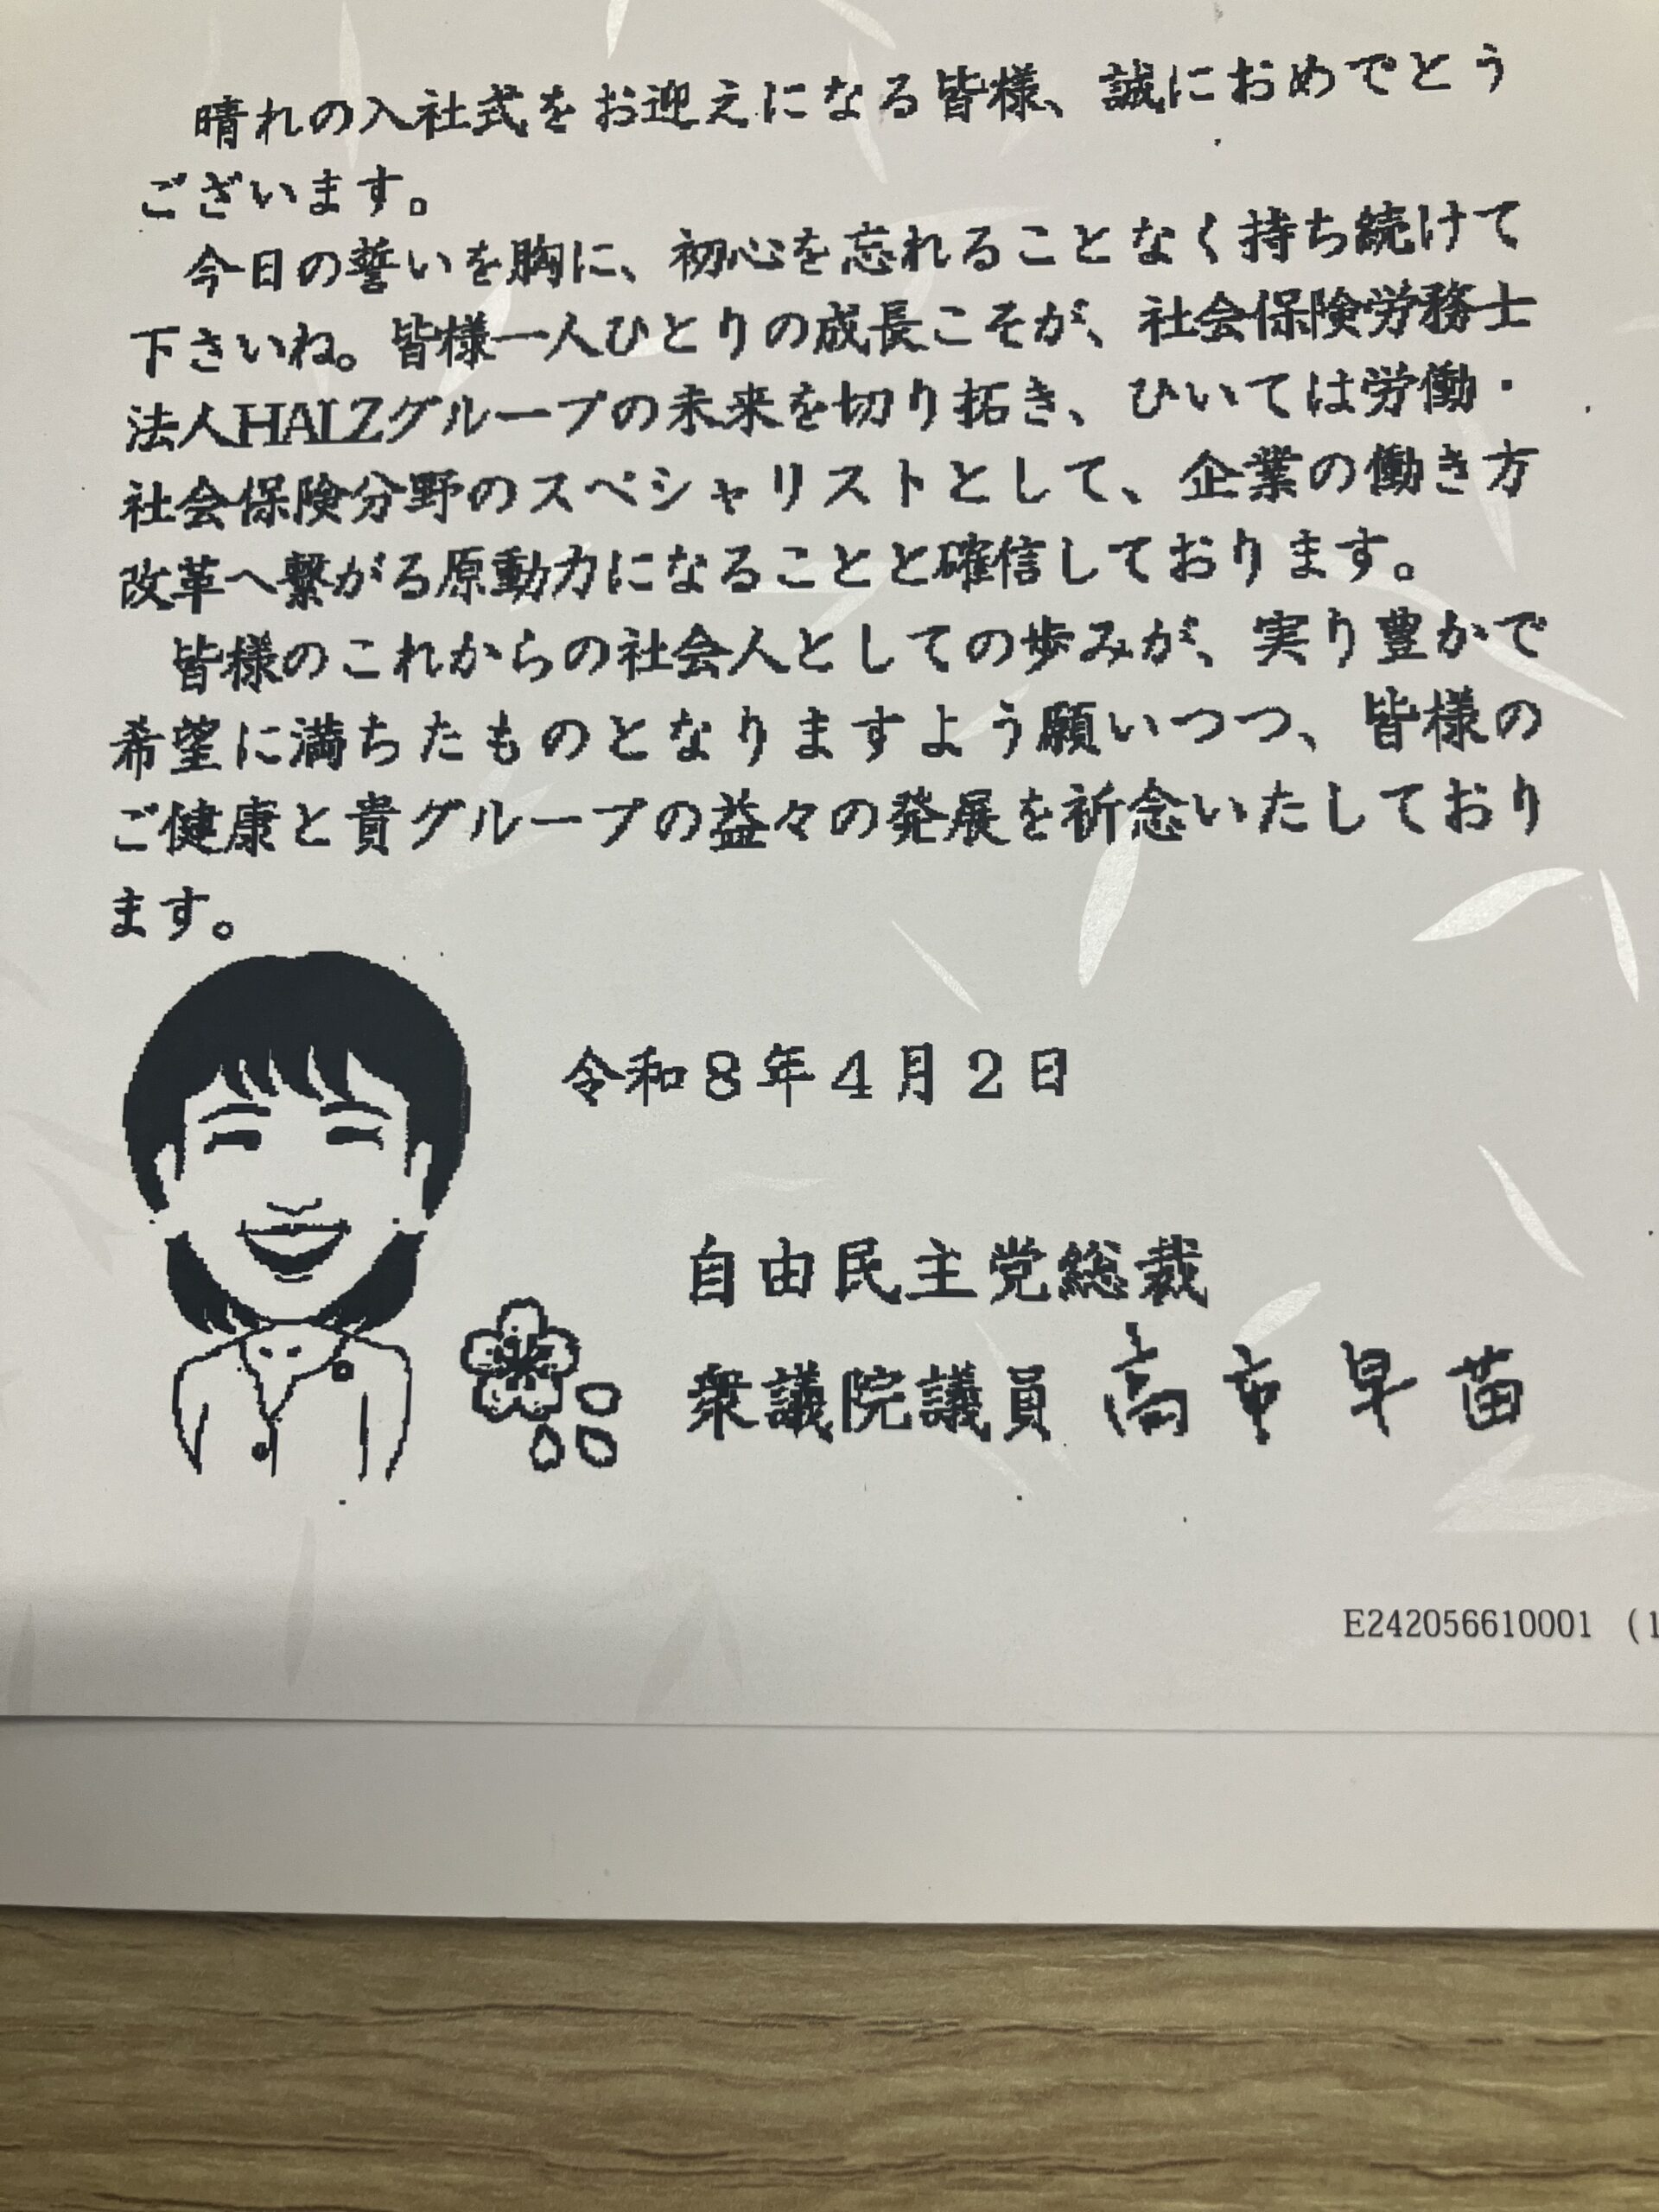 晴れの入社式をお迎えになる皆様、誠におめでとう
ございます。
今日の誓いを胸に、初心を忘れることなく持ち続けて
下さいね。皆様一人ひとりの成長こそが、社会保険労務士
法人HALZグループの未来を切り拓き、ひいては労働・
社会保険分野のスペシャリストとして、企業の働き方
改革へ繋がる原動力になることと確信しております。
皆様のこれからの社会人としての歩みが、実り豊かで
希望に満ちたものとなりますよう願いつつ、皆様の
ご健康と貴グループの益々の発展を祈念いたしており
ます。
令和8年4月2日
自由民主党総裁
衆議院議員 高市早苗
E242056610001 (1